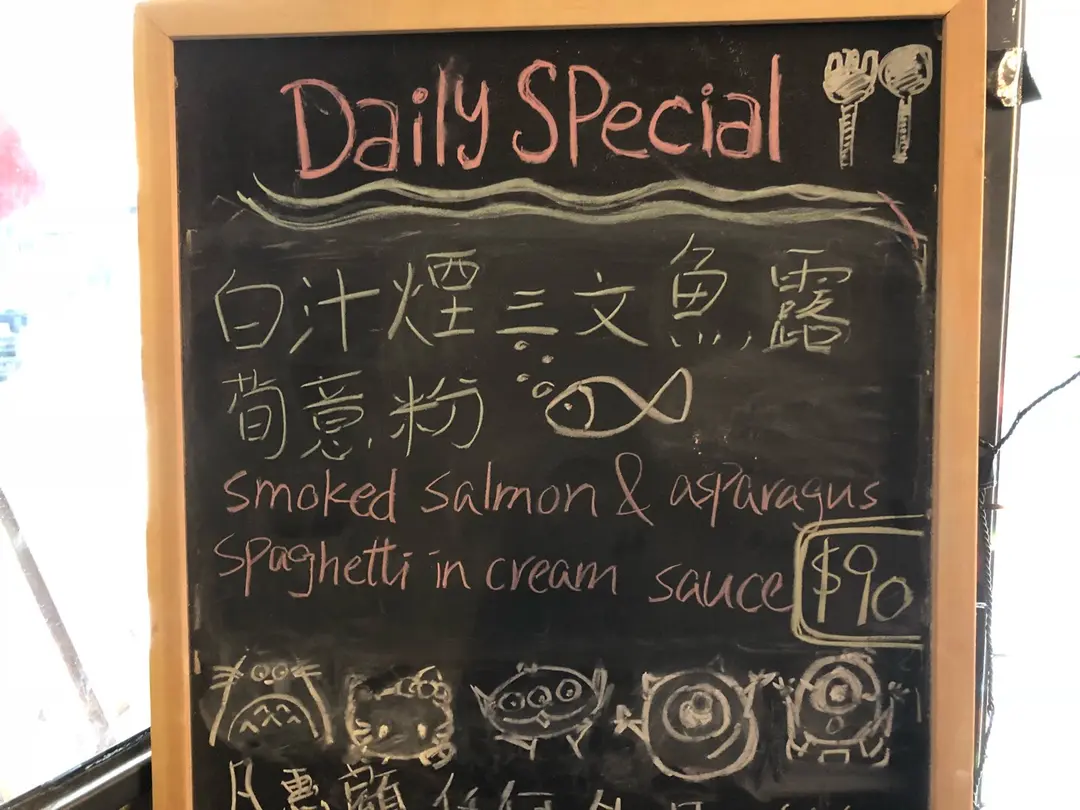 Daily SPecial
白汁煙三文魚露
荀意粉
smoked salmon & asparagus
spaghetti in cream sauce $90
凡惠顧任何